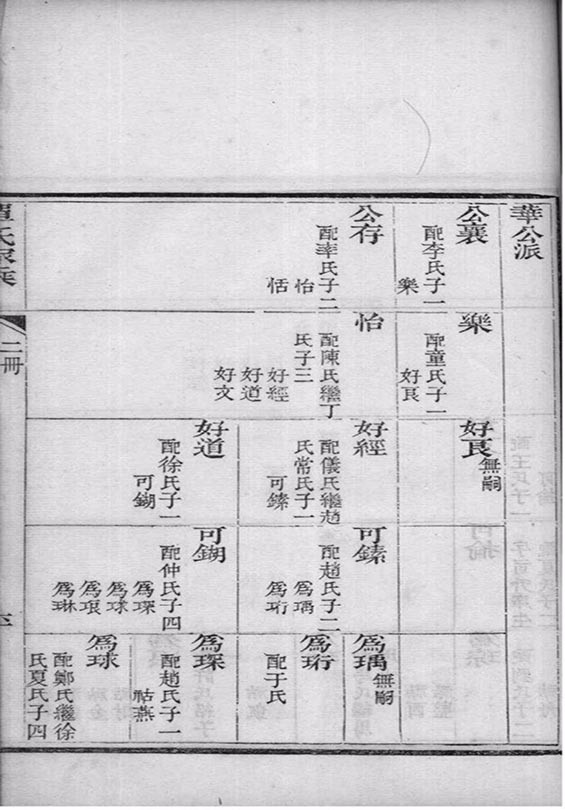 華公派
公襄
配李氏子一
樂
公存
配李氏子二
怡
恬
樂
配童氏子一
好良
怡
配陳氏繼丁
氏子三
好經
好道
好文
好良
無嗣
好經
配儀氏繼趙
氏常氏子一
可鎍
好道
配徐氏子一
可鎙
可鎍
配趙氏子二
為瑀
為珩
可鎙
配仲氏子四
為琛
為球
為琅
為琳
為瑀
無嗣
為珩
配于氏
為琛
配趙氏子一
帖燕
為球
配鄭氏繼徐
氏夏氏子四
氏家乘
二冊